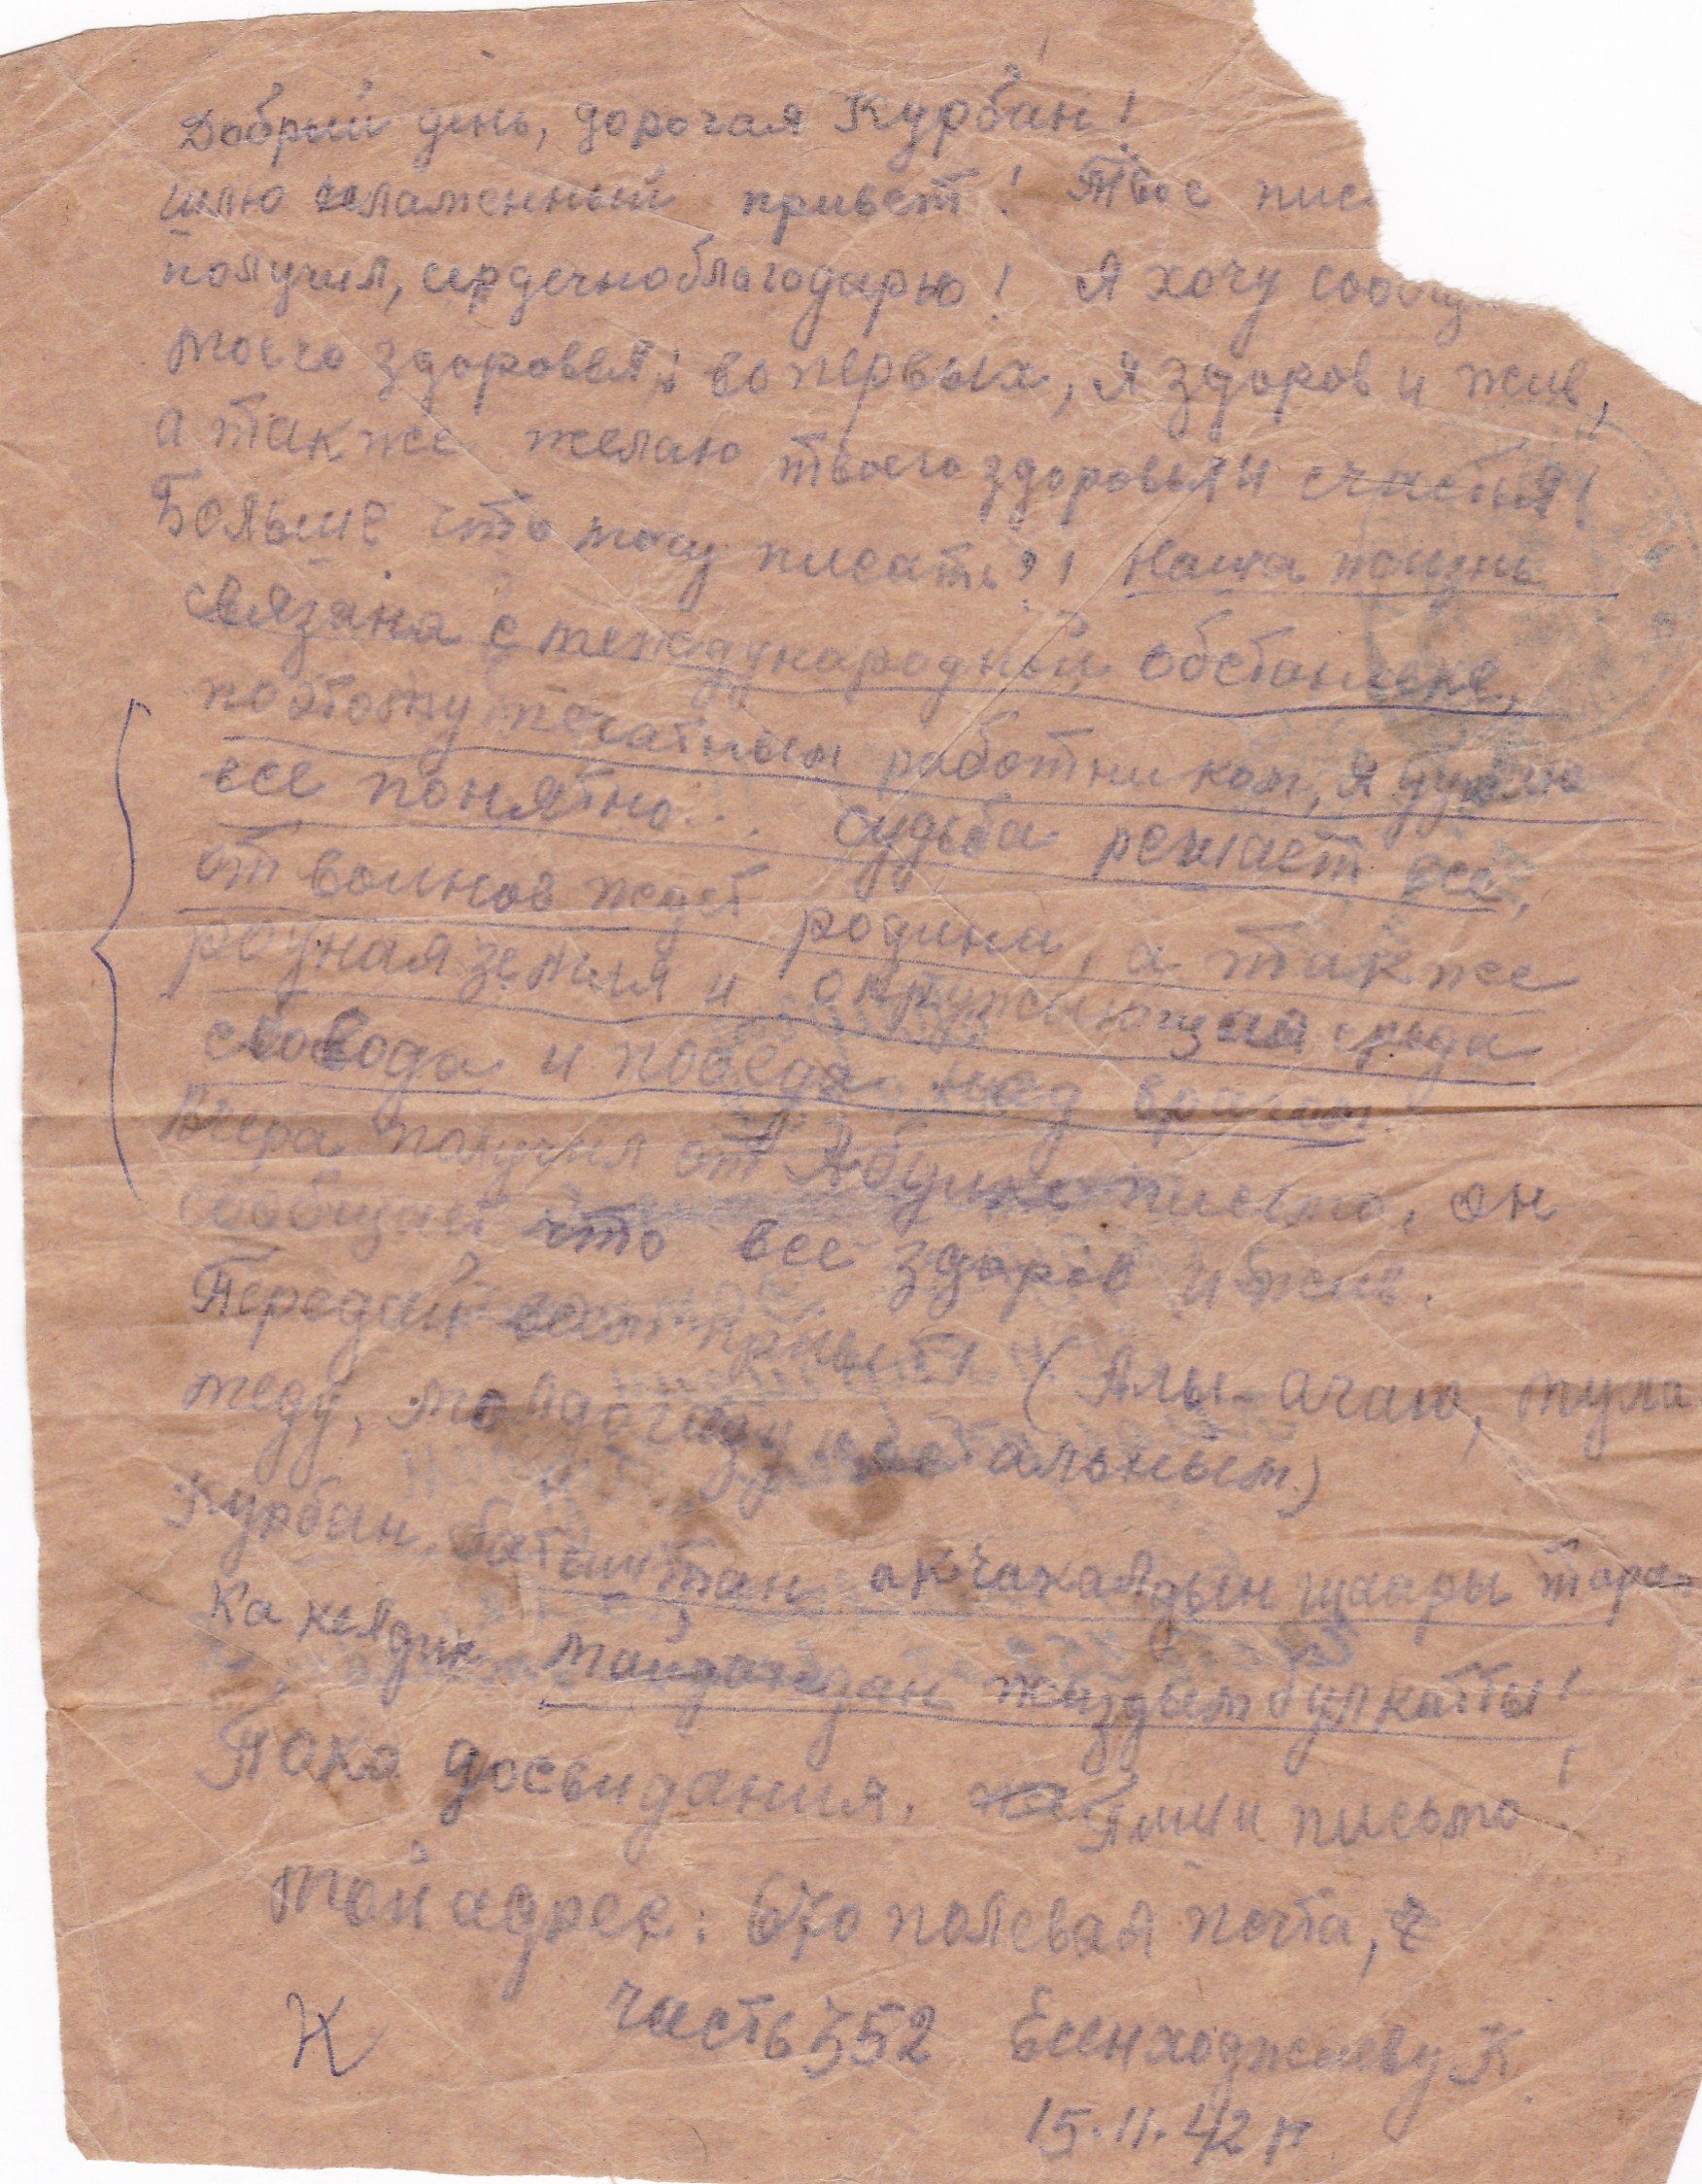 Добрый день, дорогая Курбан!
шлю пламенный привет! Твое пис
получил, сердечно благодарю! Я хочу сообщ
моего здоровья; во первых, я здоров и жив,
а также желаю твоего здоровья и счастья!
Больше что могу писать?! Наша жизнь
связана с международный обстановке,
поэтому печатным работником, я думаю
все понятно... Судьба решает все,
от воинов ждет родина, а также
родная земля и окружающая среда
свобода и победа над врагом.
Вчера получил от письмо, он
сообщает что все здоров и жив.
Передай всем привет (Алы-ачаю, мула
меду, и остальным)
Курбан, батыштан шаары тара
ка келдик жаздым
Пока досвидания. Пиши письмо!
Мой адрес: полевая почта,
часть 352 Есенходжаеву К.
15.11.42 г
К